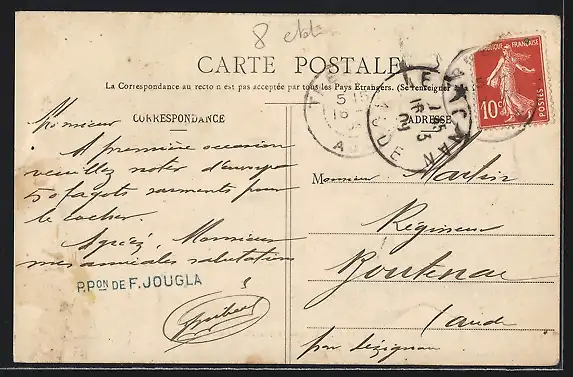 CARTE POSTALE
La Correspondance au recto n est pas acceptée par tous les Pays Etrangers. (Se renseigner à la
CORRESPONDANCE
ADRESSE
RÉPUBLIQUE FRANÇAISE
10c
POSTES
LEZIGNAN
AUDE
Monsieur
A première occasion
veuillez noter d'envoyer
50 fagots sarments pour
le cocher.
Agréez, Monsieur
mes amicales salutations
P.PON DE F. JOUGLA
Monsieur Martin
Régisseur
Boutenac
(aude
par Lézignan